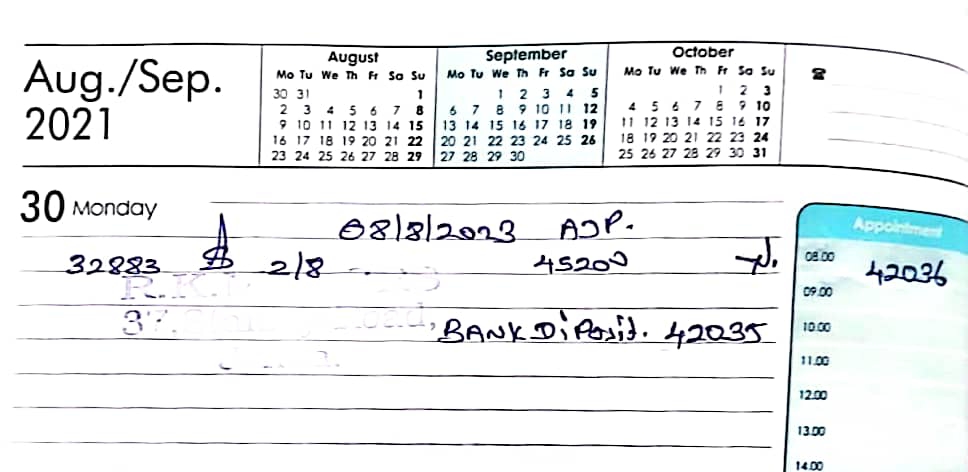 Aug./Sep.
2021
August
Mo Tu We Th Fr Sa Su
30 31 1
2 3 4 5 6 7 8
9 10 11 12 13 14 15
16 17 18 19 20 21 22
23 24 25 26 27 28 29
September
Mo Tu We Th Fr Sa Su
1 2 3 4 5
6 7 8 9 10 11 12
13 14 15 16 17 18 19
20 21 22 23 24 25 26
27 28 29 30
October
Mo Tu We Th Fr Sa Su
1 2 3
4 5 6 7 8 9 10
11 12 13 14 15 16 17
18 19 20 21 22 23 24
25 26 27 28 29 30 31
30 Monday
08/8/2023 AJP.
32883 2/8 45200
R.K.
37.
BANK Diposit. 42035
Appointment
08.00 42036
09.00
10.00
11.00
12.00
13.00
14.00